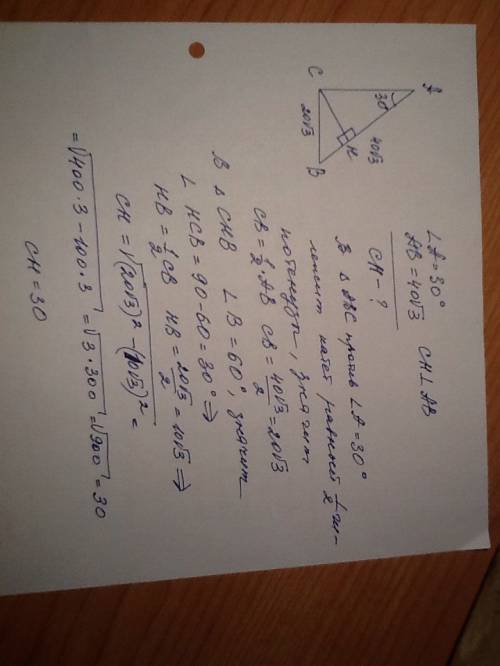 A
30°
40√3
C
H
20√3
B
∠A=30°
AB=40√3 CH⊥AB
CH-?
В △ABC против ∠A=30°
лежит катет равный 1/2 ги-
потенузы, значит
CB=1/2·AB CB=40√3/2=20√3
В △CHB ∠B=60°, значит
∠HCB=90-60=30°⇒
HB=1/2CB HB=20√3/2=10√3⇒
CH=√(20√3)²-(10√3)²=
=√400·3-100·3=√3·300=√900=30
CH=30